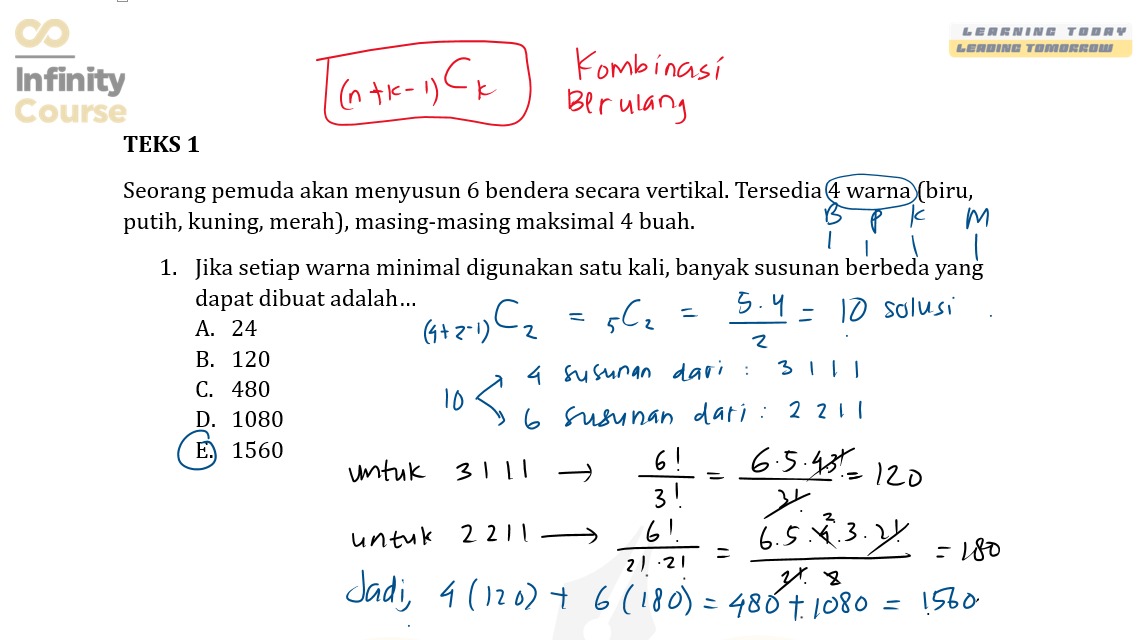 Infinity
Course
LEARNING TODAY
LEADING TOMORROW
(n+k-1)Ck
Kombinasi
Berulang
TEKS 1
Seorang pemuda akan menyusun 6 bendera secara vertikal. Tersedia 4 warna (biru,
putih, kuning, merah), masing-masing maksimal 4 buah.
B P K M
1 1 1 1
1. Jika setiap warna minimal digunakan satu kali, banyak susunan berbeda yang
dapat dibuat adalah…
A. 24
B. 120
C. 480
D. 1080
E. 1560
(4+2-1)C2 = 5C2 = 5.4/2 = 10 solusi
10 < 4 susunan dari : 3 1 1 1
6 susunan dari : 2 2 1 1
untuk 3 1 1 1 → 6!/3! = 6.5.4.3!/3! = 120
untuk 2 2 1 1 → 6!/2!.2! = 6.5.4.3.2!/2!.2 = 180
Jadi, 4(120) + 6(180) = 480 + 1080 = 1560